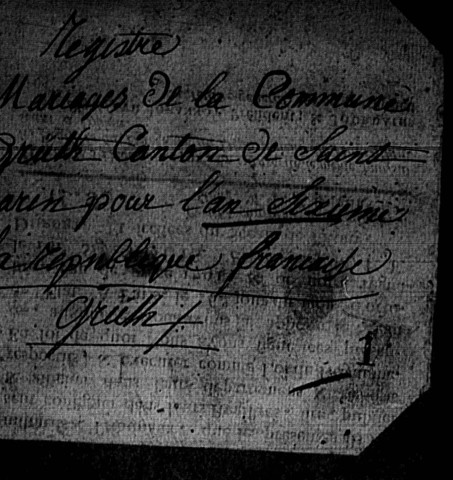 Registre
Mariages de la Commune
Grüth Canton de Saint
arin pour l'an Sixieme
la republique francaise
Grüth
1